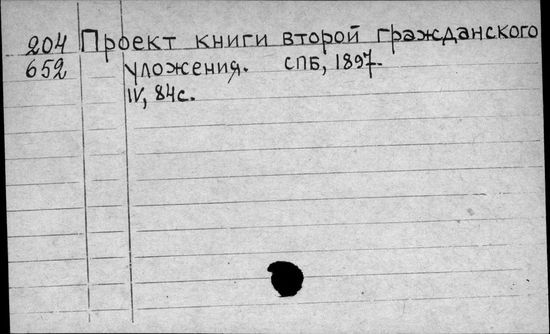 204 Проект книги второй гражданского
652 уложения. СПБ, 1897.
IV, 84с.